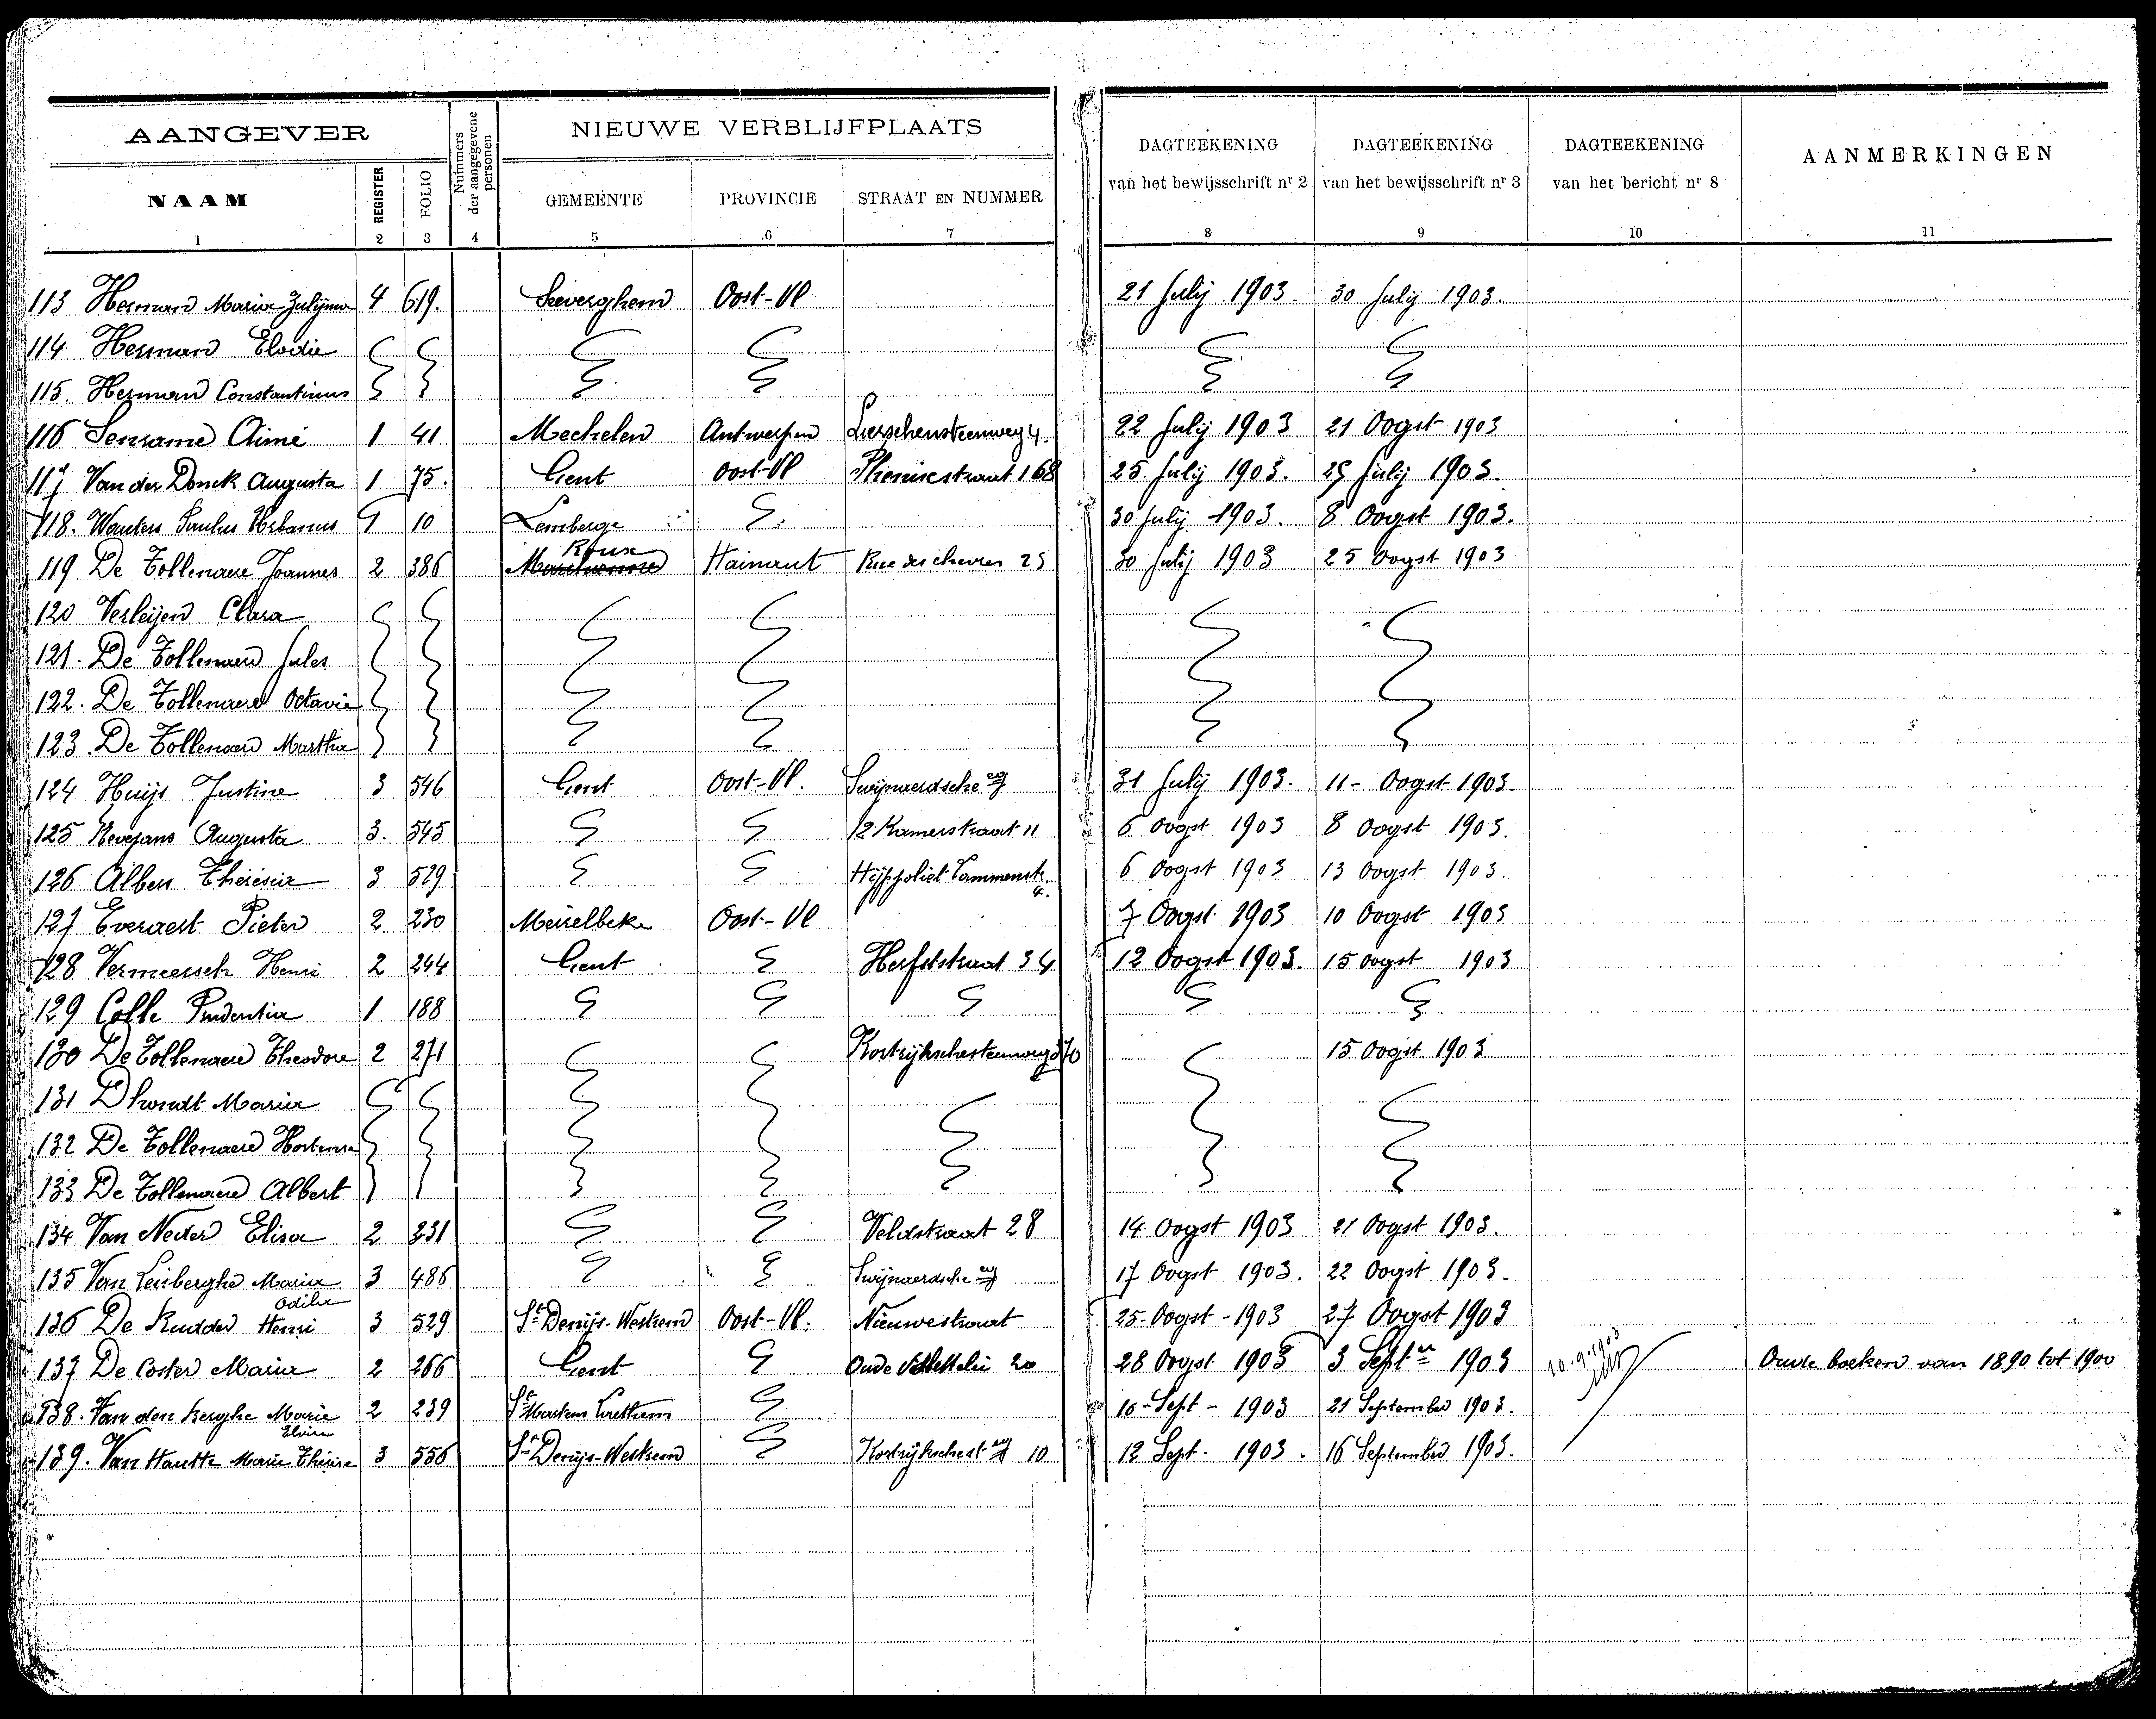 AANGEVER
Nummers der aangegevene personen
NIEUWE VERBLIJFPLAATS
DAGTEEKENING van het bewijsschrift nr 2
DAGTEEKENING van het bewijsschrift nr 3
DAGTEEKENING van het bericht nr 8
AANMERKINGEN
NAAM REGISTER FOLIO GEMEENTE PROVINCIE STRAAT EN NUMMER
1 2 3 4 5 6 7 8 9 10 11
113 Herman Maria 4 619. Seeverghem Oost-Vl 21 July 1903. 30 July 1903.
114 Herman Elodie
115. Herman Constantinus
116 Aimé 1 41 Mechelen Antwerpen Lierschensteenweg 4. 22 July 1903 21 Oogst 1903
117 Van der Donck Augusta 1 75. Gent Oost-Vl 168 25 July 1903. 29 July 1903.
118. Wauters Paulus Urbanus 1 10 Lemberge 30 July 1903. 8 Oogst 1903.
119 De Tollenaere Joannes 2 386 Roux Hainaut Rue des chevres 25 30 July 1903 25 Oogst 1903
120 Verleijen Clara
121. De Tollenaere Jules
122. De Tollenaere Octavie
123. De Tollenaere Martha
124 Huijs Justine 3 546 Gent Oost-Vl. Swijnaerdsche wg 31 July 1903. 11- Oogst 1903.
125 Nevejans Augusta 3. 545 12 Kamerstraat 11 6 Oogst 1903 8 Oogst 1903.
126 Albers Theresia 3 529 Hyppoliet Lammenstr. 4. 6 Oogst 1903 13 Oogst 1903.
127 Everaert Pieter 2 230 Meirelbeke Oost-Vl 7 Oogst 1903 10 Oogst 1903
128 Vermeersch Henri 2 244 Gent Herfststraat 34 12 Oogst 1903. 15 Oogst 1903
129 Colle Prudentia 1 188
130 De Tollenaere Theodore 2 271 Kortrijkschesteenweg 370 15 Oogst 1903
131 Dhondt Maria
132 De Tollenaere Hortense
133 De Tollenaere Albert
134 Van Neder Elisa 2 231 Veldstraat 28 14 Oogst 1903 21 Oogst 1903.
135 Van Leirberghe Maria Odila 3 486 Swijnaerdsche wg 17 Oogst 1903. 22 Oogst 1903.
136 De Rudder Henri 3 529 St Denijs-Westrem Oost-Vl. Nieuwestraat 25. Oogst - 1903 27 Oogst 1903
137 De Coster Maria 2 266 Gent Oude 20 28 Oogst 1903 3 Septer 1903 10.9.1903 Oude boeken van 1890 tot 1900
138. Van den Berghe Marie Elvire 2 239 St Martens Laethem 10 - Sept - 1903 21 September 1903.
139. Van Hautte Marie Thérèse 3 556 St Denijs-Westrem Kortrijkschest wg 10 12 Sept. 1903. 16 September 1903.